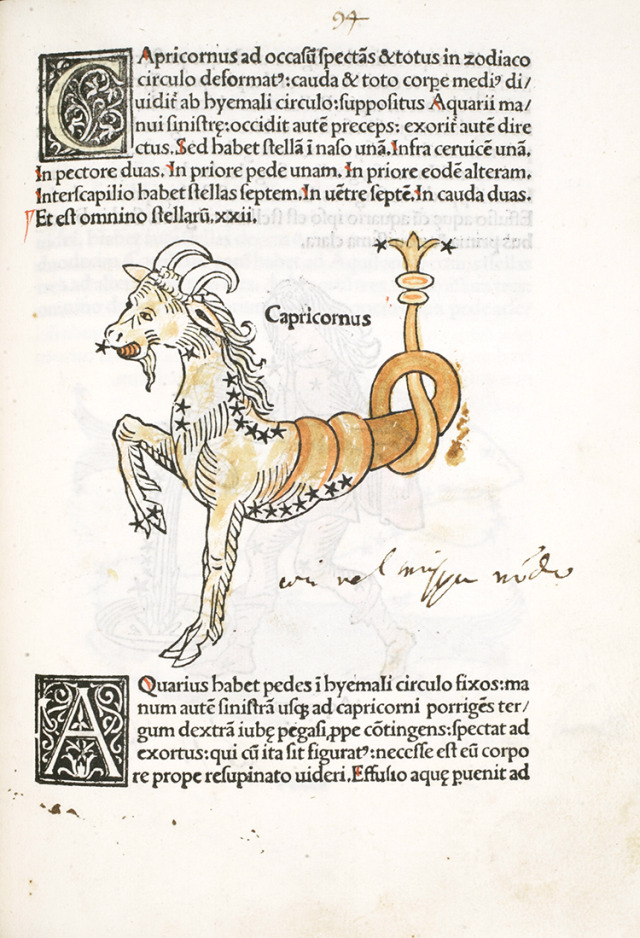 94
CApricornus ad occasũ spectãs & totus in zodiaco
circulo deformatꝰ: cauda & toto corpe mediꝰ di/
uidit̃ ab hyemali circulo: suppositus Aquarii ma/
nui sinistrę: occidit autẽ preceps: exorit̃ autẽ dire
ctus. Sed habet stellã ĩ naso unã. Infra ceruicẽ unã.
In pectore duas. In priore pede unam. In priore eodẽ alteram.
Interscapilio habet stellas septem. In uẽtre septẽ. In cauda duas.
Et est omnino stellarũ. xxii.
Capricornus
AQuarius habet pedes ĩ hyemali circulo fixos: ma
num autẽ sinistrã usq̃ ad capricorni porrigẽs ter/
gum dextrã iubę pegasi, ppe cõtingens: spectat ad
exortus: qui cũ ita sit figuratꝰ: necesse est eũ corpo
re prope resupinato uideri. Effusio aquę puenit ad